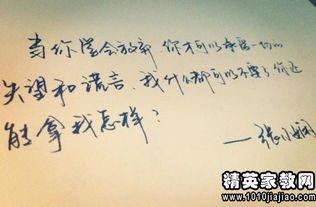 当你学会放弃 你才可以承受一切的
失望和谎言。我什么都可以不要了你还
能拿我怎样？
——张小娴
精英家教网
www.1010jiajiao.com